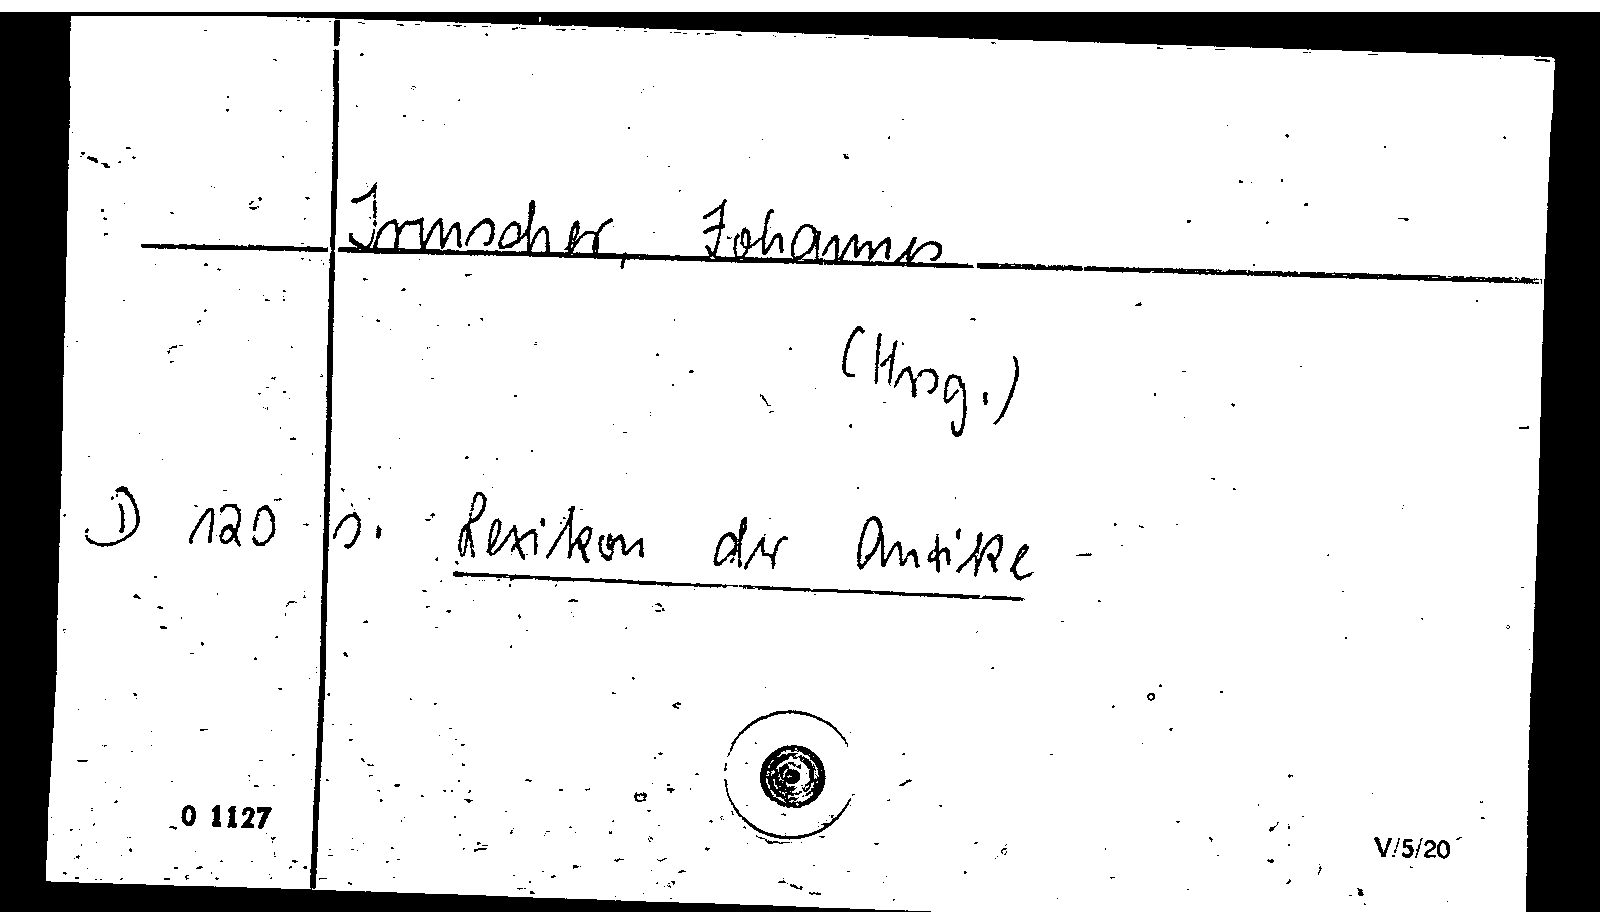 Irmscher, Johannes
(Hrsg.)
D 120 s. Lexikon der Antike
0 1127
V/5/20